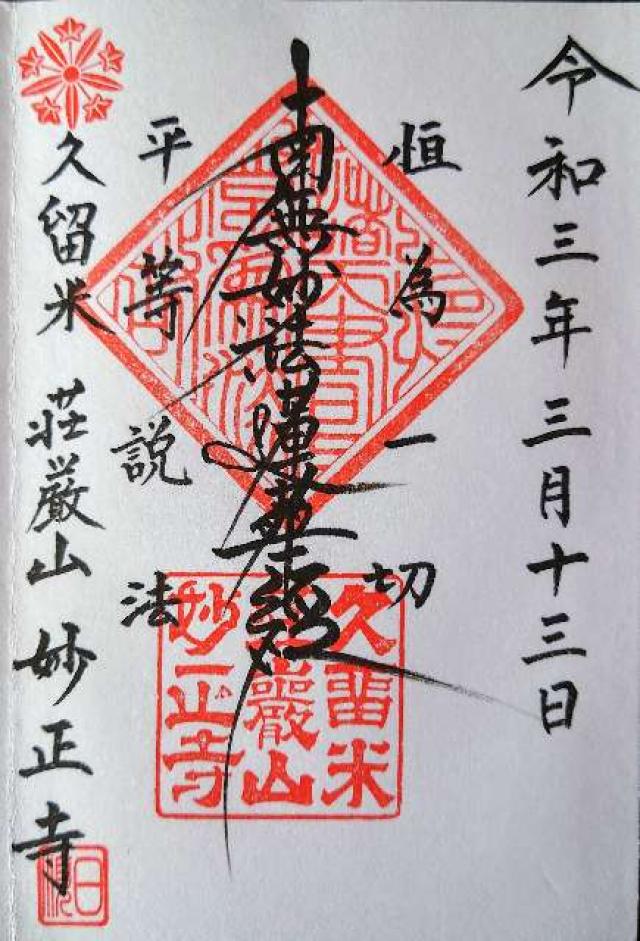 令和三年三月十三日
恒為一切
南無妙法蓮華経
平等説法
久留米 荘厳山 妙正寺
久留米
荘巖山
妙正寺